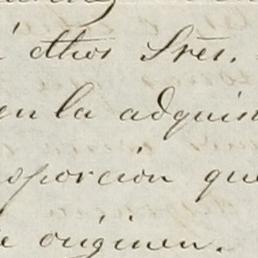 á dhos Sres.
en la adquis
sporcion que
e originen.